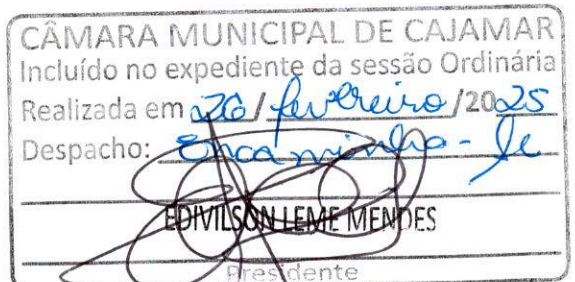 CÂMARA MUNICIPAL DE CAJAMAR
Incluído no expediente da sessão Ordinária
Realizada em 26/fevereiro/2025
Despacho: Encaminha-se
EDIVILSON LEME MENDES
Presidente